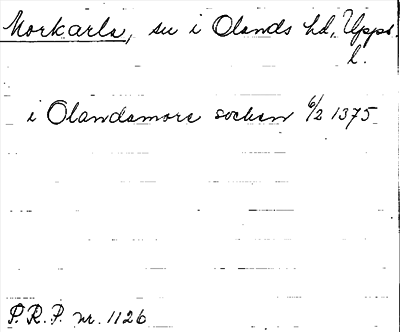 Morkarla, sn i Olands hd, Upps.
l.
i Olandsmora socken 6/2 1375
P.R.P. nr. 1126